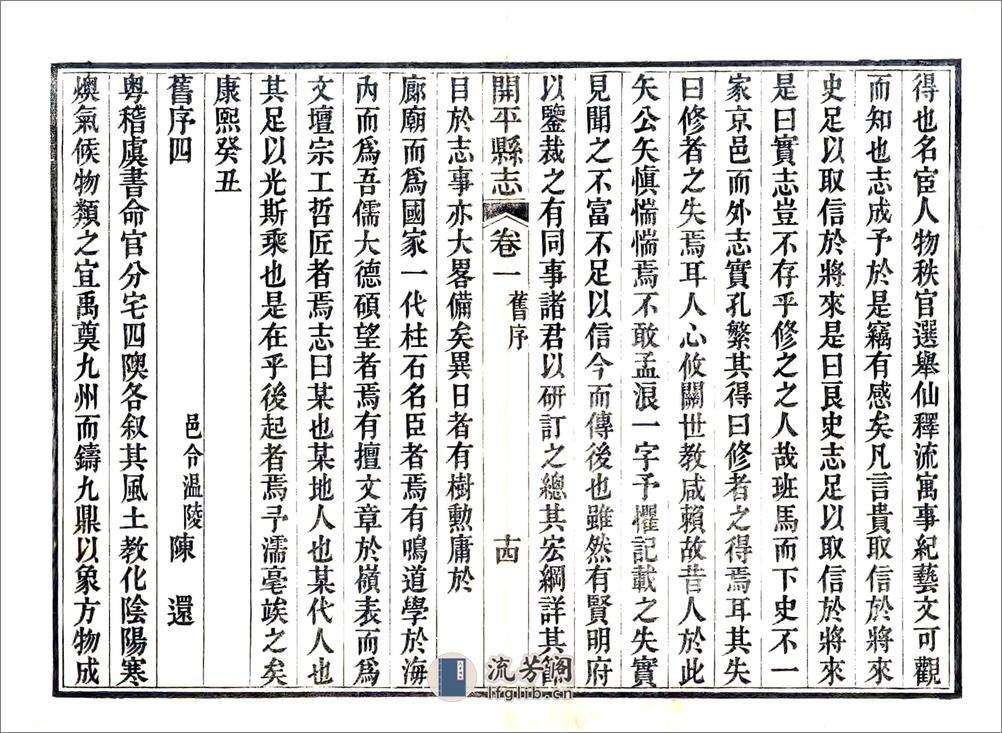 得也名宦人物秩官選舉仙釋流寓事紀藝文可觀
而知也志成予於是竊有感矣凡言貴取信於將來
史足以取信於將來是曰良史志足以取信於將來
是曰實志豈不存乎修之之人哉班馬而下史不一
家京邑而外志實孔繁其得曰修者之得焉耳其失
曰修者之失焉耳人心攸關世教咸賴故昔人於此
矢公矢愼惴惴焉不敢孟浪一字予懼記載之失實
見聞之不富不足以信今而傳後也雖然有賢明府
以鑒裁之有同事諸君以硏訂之總其宏綱詳其節
開平縣志 卷一 舊序 十四
目於志事亦大畧備矣異日者有樹勳庸於
廊廟而爲國家一代柱石名臣者焉有鳴道學於海
內而爲吾儒大德碩望者焉有擅文章於嶺表而爲
文壇宗工哲匠者焉志曰某也某地人也某代人也
其足以光斯乘也是在乎後起者焉予濡毫竢之矣
康熙癸丑
舊序四 邑令温陵陳還
粤稽虞書命官分宅四隩各叙其風土教化陰陽寒
燠氣候物類之宜禹奠九州而鑄九鼎以象方物成
流芳閣
lfglib.cn